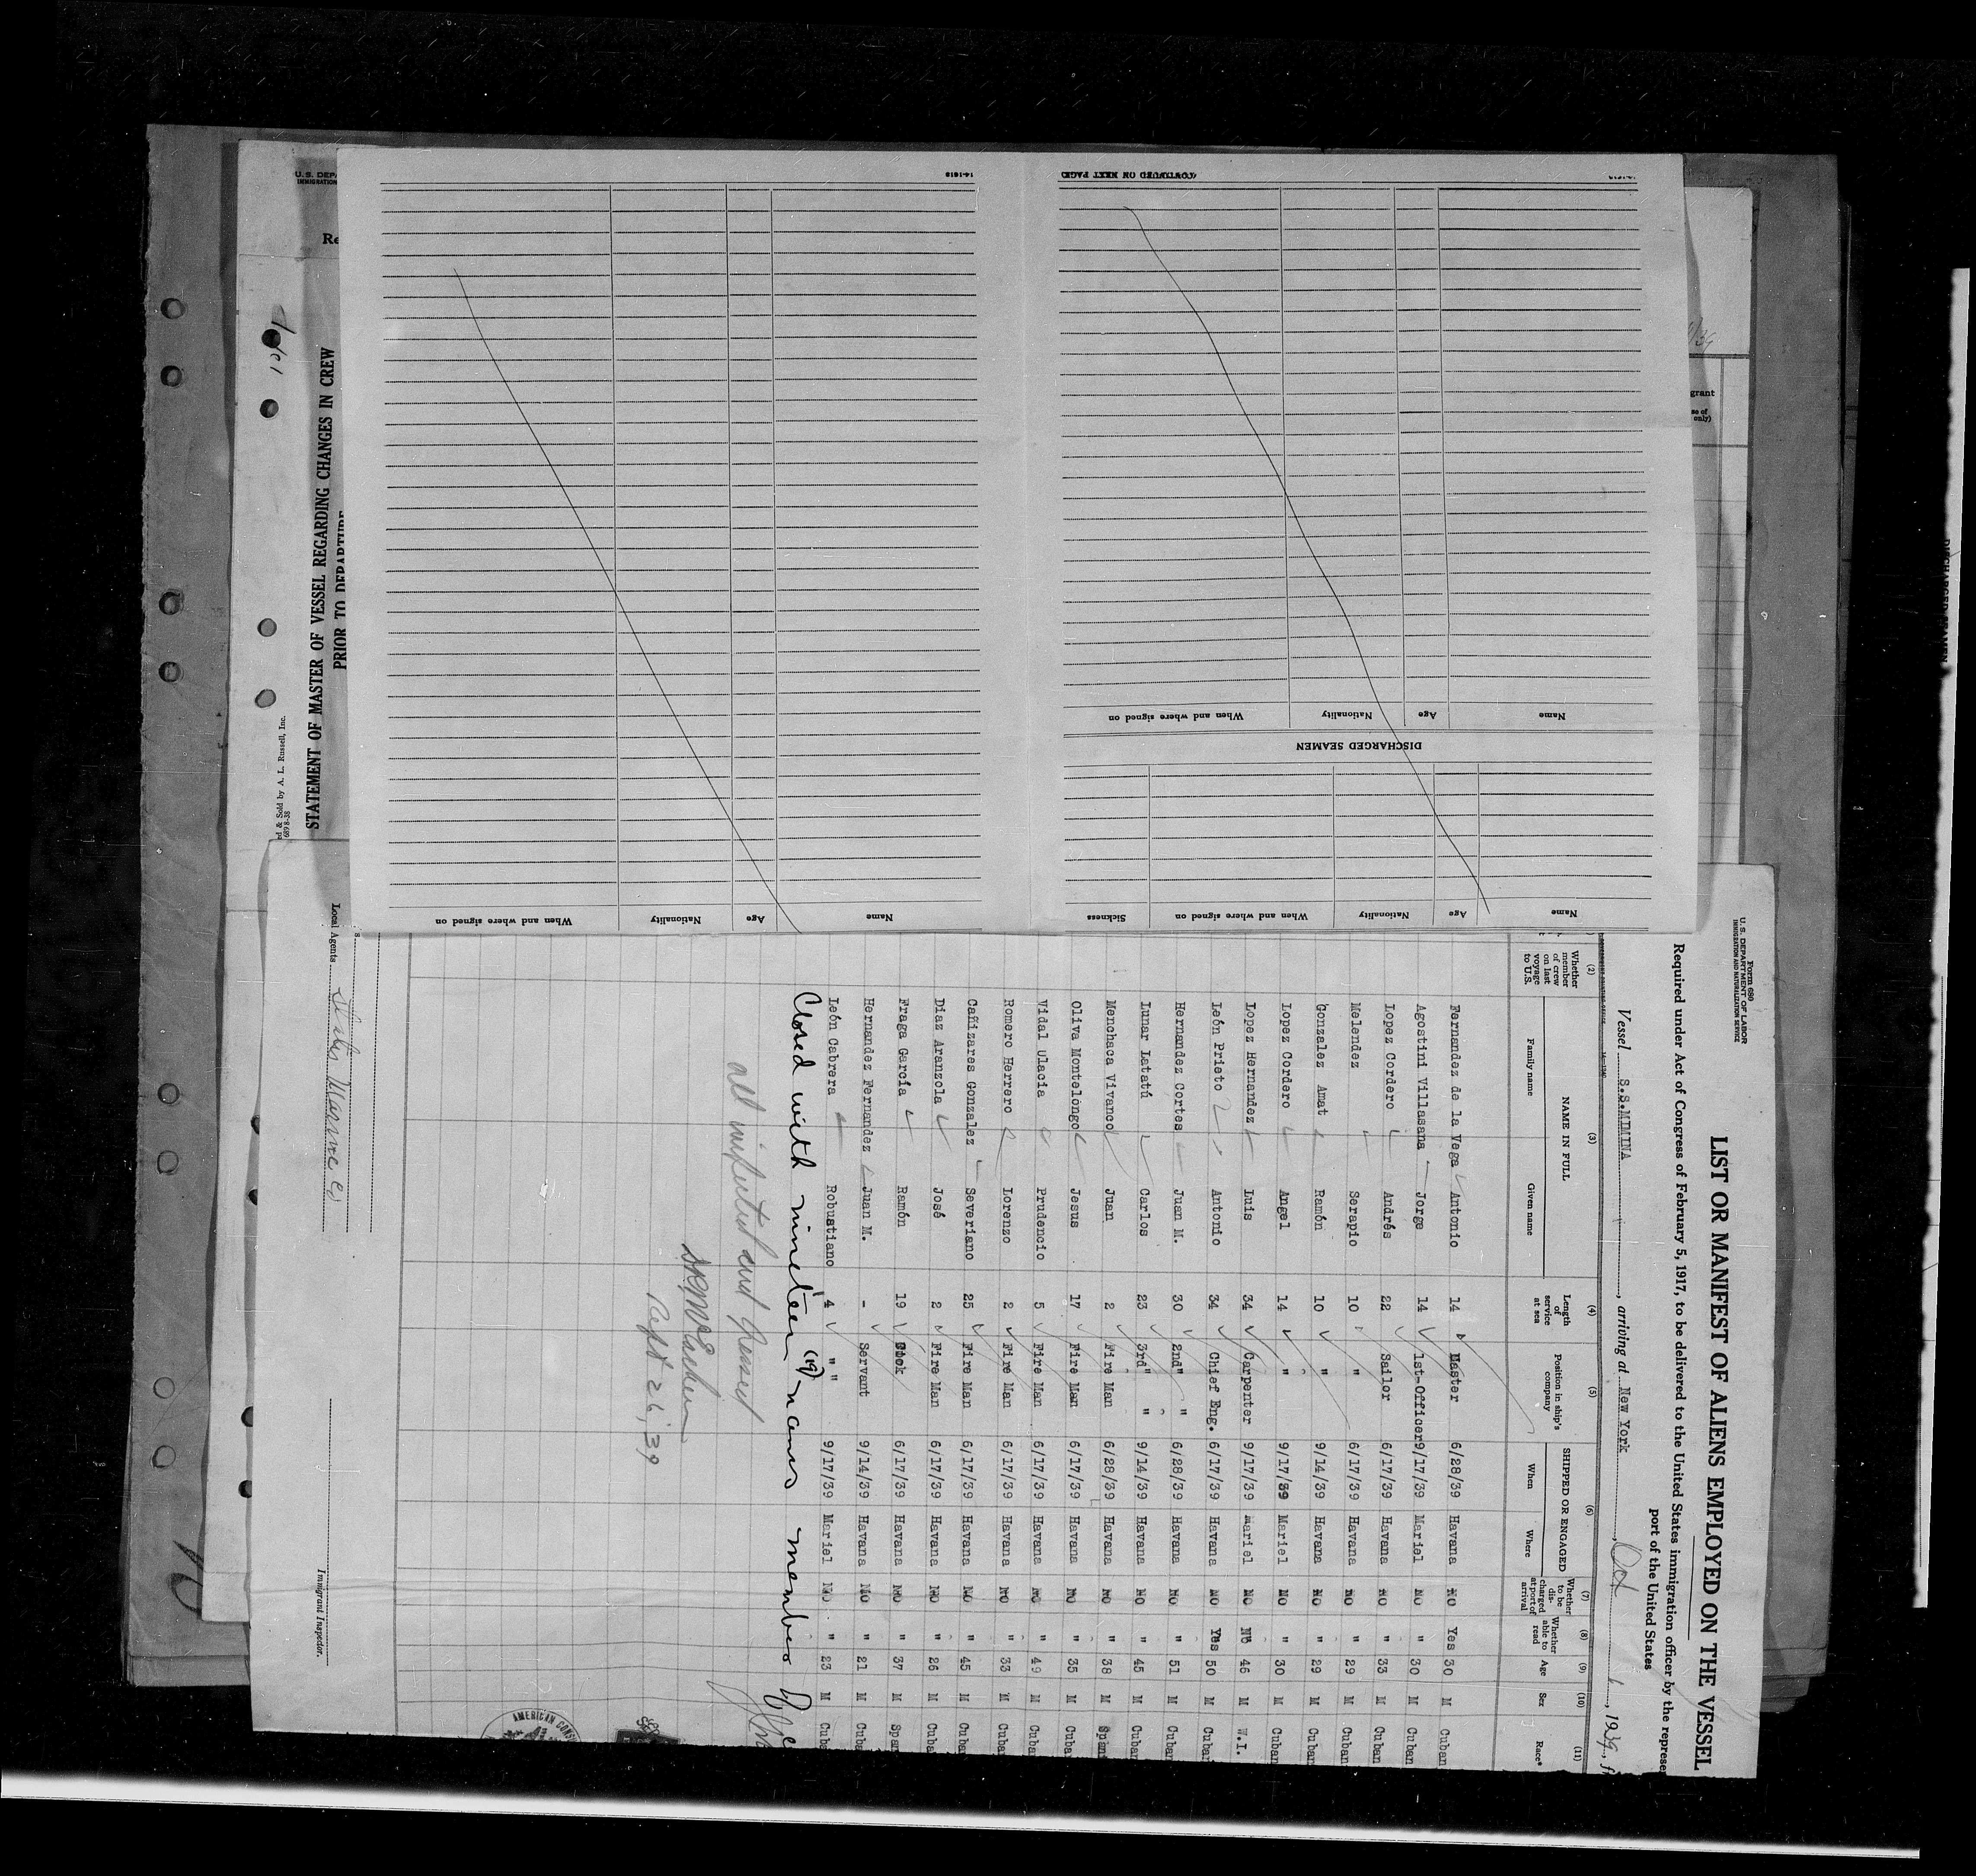 Form 680
U.S. DEPARTMENT OF LABOR
IMMIGRATION AND NATURALIZATION SERVICE
LIST OR MANIFEST OF ALIENS EMPLOYED ON THE VESSEL
Required under Act of Congress of February 5, 1917, to be delivered to the United States immigration officer by the represe
port of the United States
Vessel S.S.MIMINA, arriving at New York, Oct, 1939, f
(2) (3) (4) (5) (6) (7) (8) (9) (10) (11)
Whether member of crew on last voyage to U.S. NAME IN FULL Family name Given name Length of service at sea Position in ship's company SHIPPED OR ENGAGED When Where Whether to be discharged at port of arrival Whether able to read Age Sex Race*
Fernandez de la Vega Antonio 14 Master 6/28/39 Havana No Yes 30 M Cuban
Agostini Villasana Jorge 14 1st-Officer 9/17/39 Mariel No " 30 M Cuban
Lopez Cordero Andrés 22 Sailor 6/17/39 Havana No " 33 M Cuban
Melendez Serapio 10 " 6/17/39 Havana No " 29 M Cuban
Gonzalez Amat Ramón 10 " 9/14/39 Havana No " 29 M Cuban
Lopez Cordero Angel 14 " 9/17/39 Mariel No " 30 M Cuban
Lopez Hernandez Luis 34 Carpenter 9/17/39 Mariel No No 46 M W.I.
León Prieto Antonio 34 Chief Eng. 6/17/39 Havana No Yes 50 M Cuban
Hernandez Cortes Juan M. 30 2nd " " 6/28/39 Havana No " 51 M Cuban
Lunar Latatú Carlos 23 3rd " " 9/14/39 Havana No " 45 M Cuban
Menchaca Vivanco Juan 2 Fire Man 6/28/39 Havana No " 38 M Span
Oliva Montelongo Jesus 17 Fire Man 6/17/39 Havana No " 35 M Cuba
Vidal Ulacia Prudencio 5 Fire Man 6/17/39 Havana No " 49 M Cuba
Romero Herrero Lorenzo 2 Fire Man 6/17/39 Havana No " 33 M Cuba
Cañizares Gonzalez Severiano 25 Fire Man 6/17/39 Havana No " 45 M Cuba
Diaz Aranzola José 2 Fire Man 6/17/39 Havana No " 26 M Cuba
Fraga García Ramón 19 Cook 6/17/39 Havana No " 37 M Span
Hernandez Fernandez Juan M. - Servant 9/14/39 Havana No " 21 M Cuba
León Cabrera Robustiano 4 " " 9/17/39 Mariel No " 23 M Cuba
Closed with nineteen (19) names members
all inspected and passed
Sept 26, 39
AMERICAN CONS
Local Agents States Marine Co
Immigrant Inspector.
Name Age Nationality When and where signed on Sickness
DISCHARGED SEAMEN
Name Age Nationality When and where signed on
(CONTINUED ON NEXT PAGE)
Name Age Nationality When and where signed on
14-1613
U.S. DEPA
IMMIGRATION
Re
STATEMENT OF MASTER OF VESSEL REGARDING CHANGES IN CREW
PRIOR TO DEPARTURE
ed & Sold by A. L. Russell, Inc.
689 8-38
grant
se of
only)
DISCHARGED SEAMEN